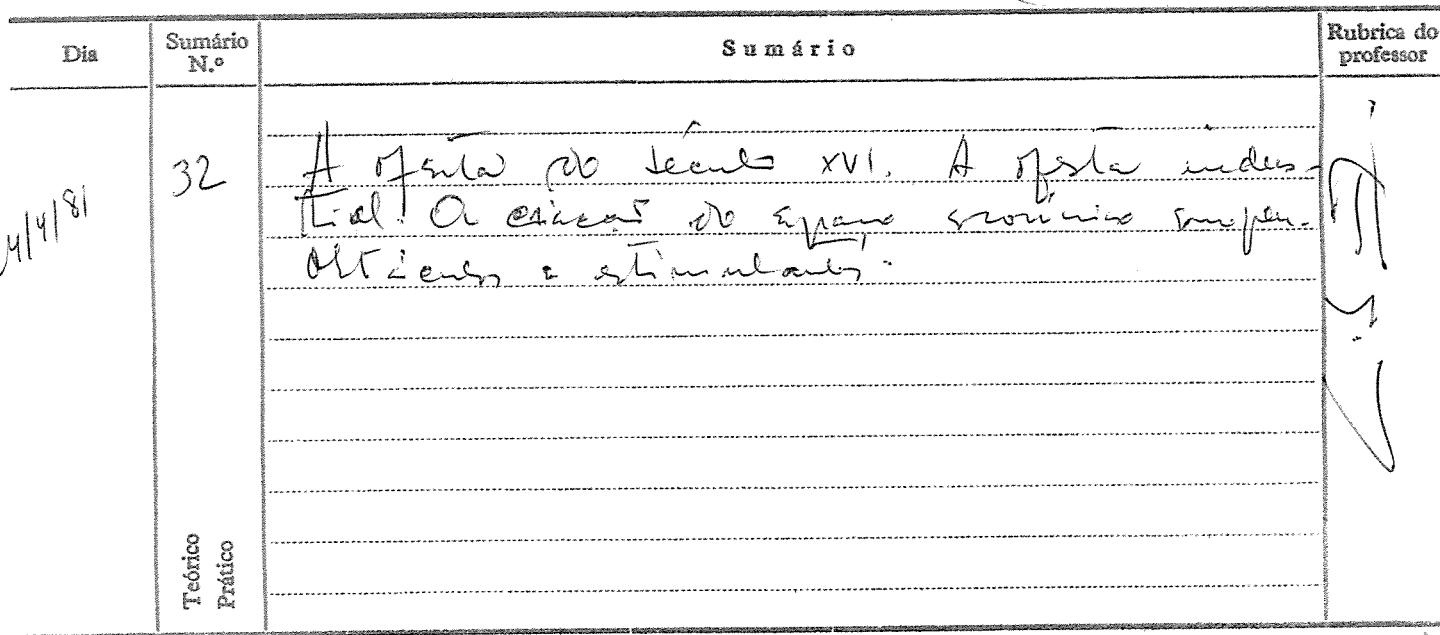 Dia
Sumário N.º
Sumário
Rubrica do professor
4/4/81
32
A oferta do século XVI. A oferta indus-
trial. A criação do espaço económico europeu.
Obstáculos e estimulantes.
Teórico
Prático